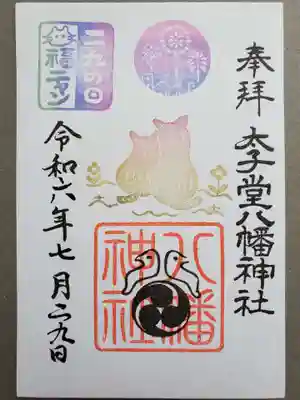 奉拝
太子堂八幡神社
八幡
神社
令和六年七月二九日
二九の日
福ニャン